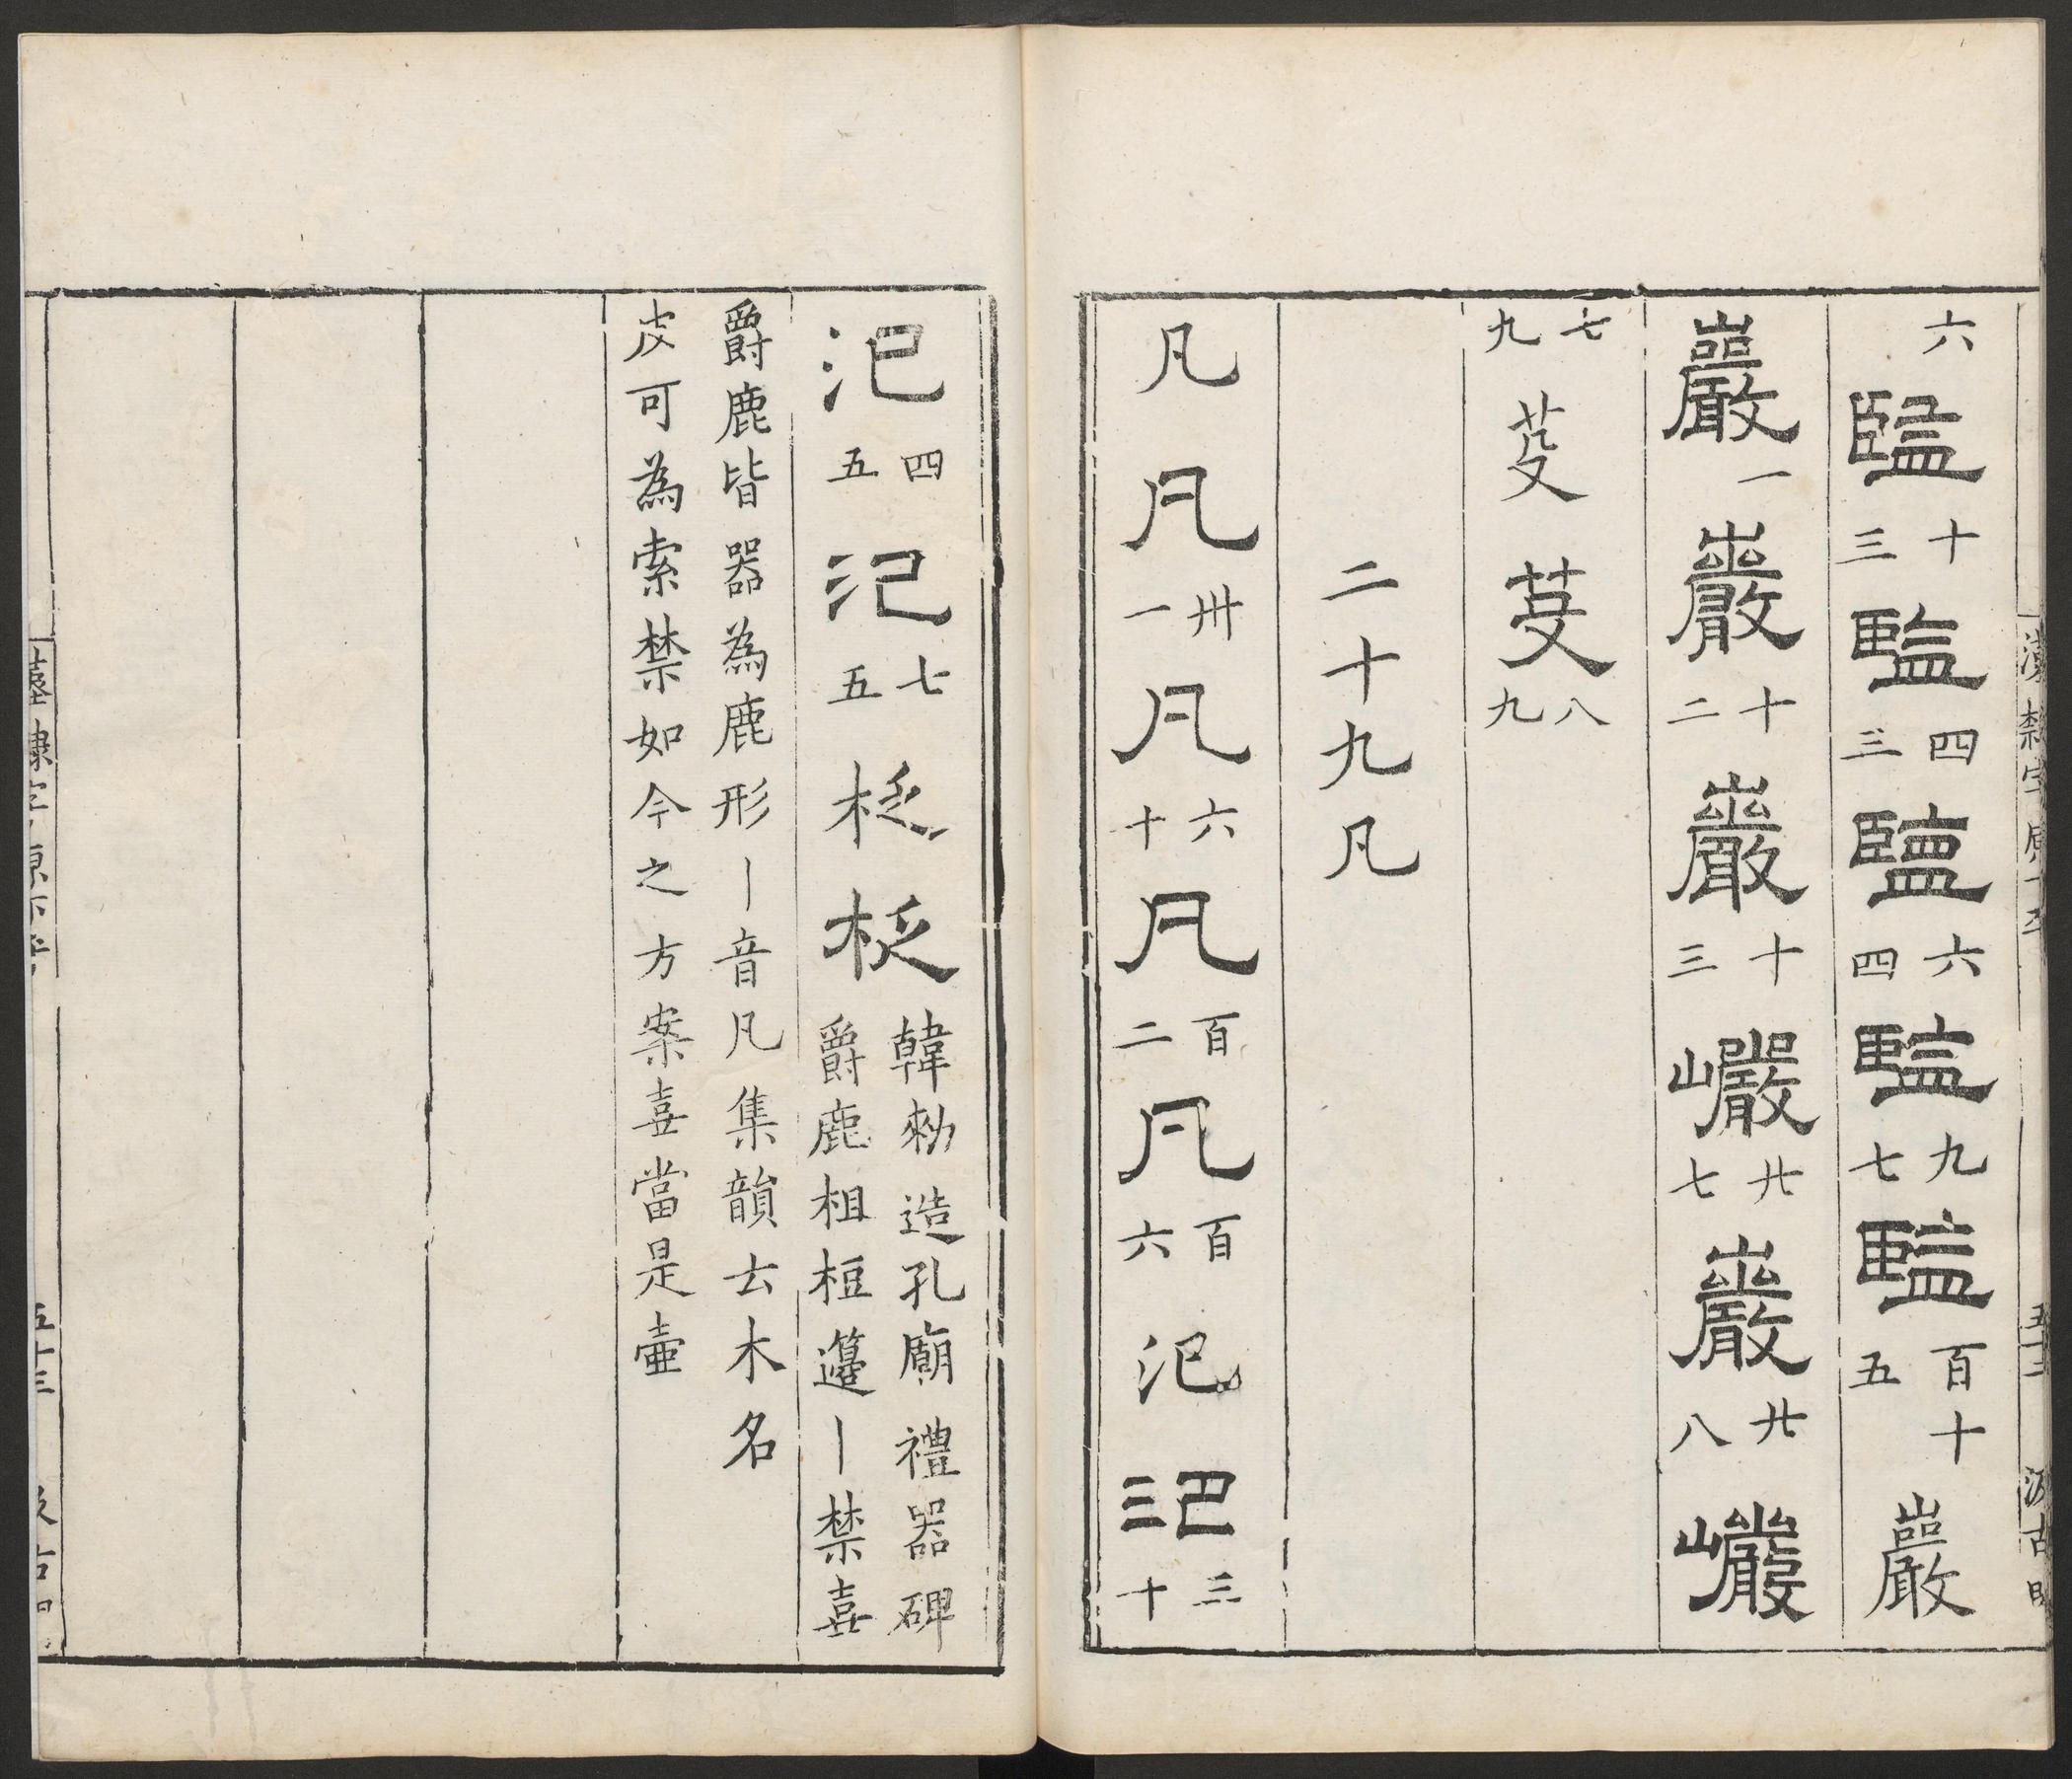 六監十三監四三監六四監九七監百十五巖
巖一巖十二巖十三巖廿七巖廿八巖
七九芟芟八九
二十九凡
凡凡卅一凡六十凡百二凡百六氾氾三十
氾四五氾七五柉柉韓勑造孔廟禮器碑
爵鹿柤桓籩丨禁喜
爵鹿皆器為鹿形丨音凡集韻去木名
皮可為索禁如今之方案喜當是壷
漢隸字原
五十二
汲古
隸字原
五十三